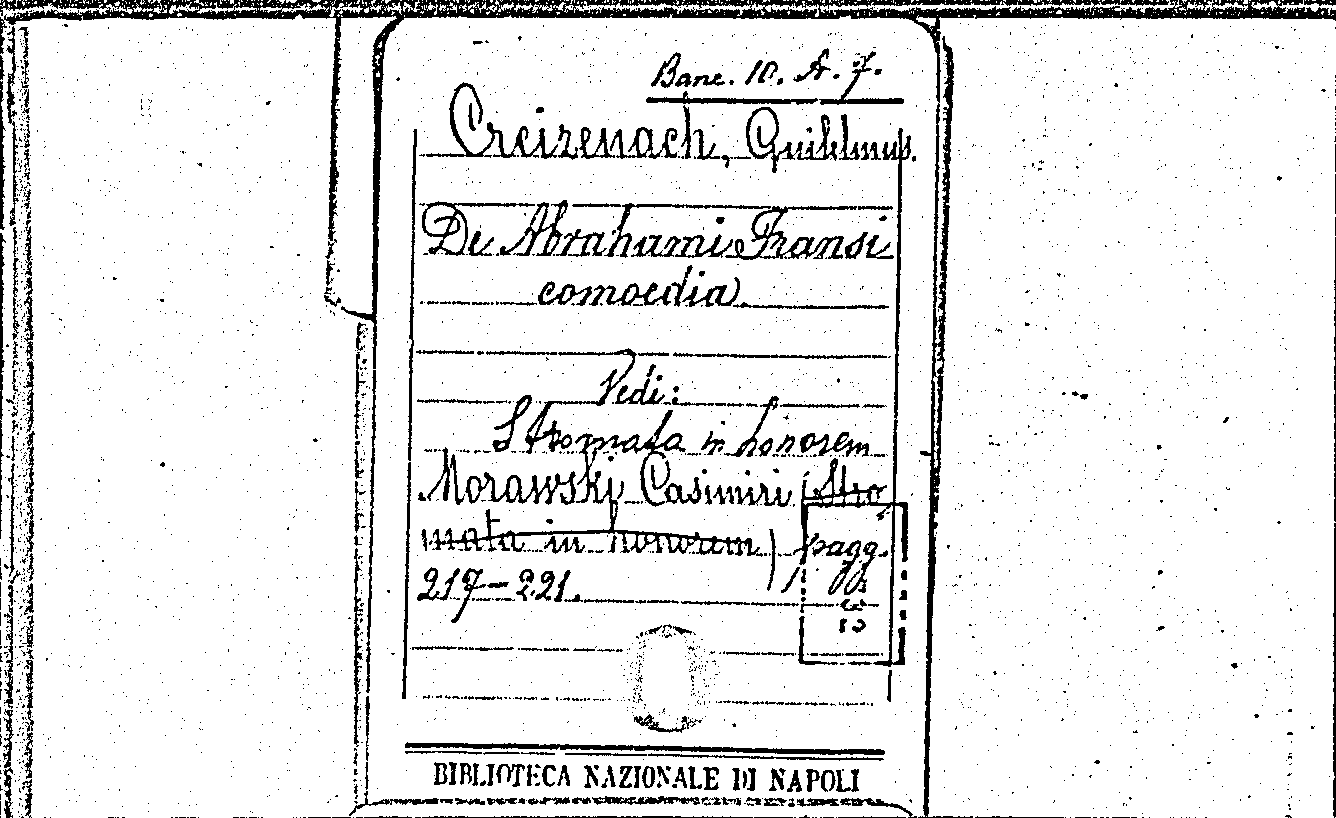 Banc. 10. A. 7.
Creizenach, Guihlmus.
De Abrahami Fransi
comoedia.
Vedi:
Stromata in honorem
Morawskj Casimiri (Stro
mata in honorem), pagg.
217-221.
BIBLIOTECA NAZIONALE DI NAPOLI